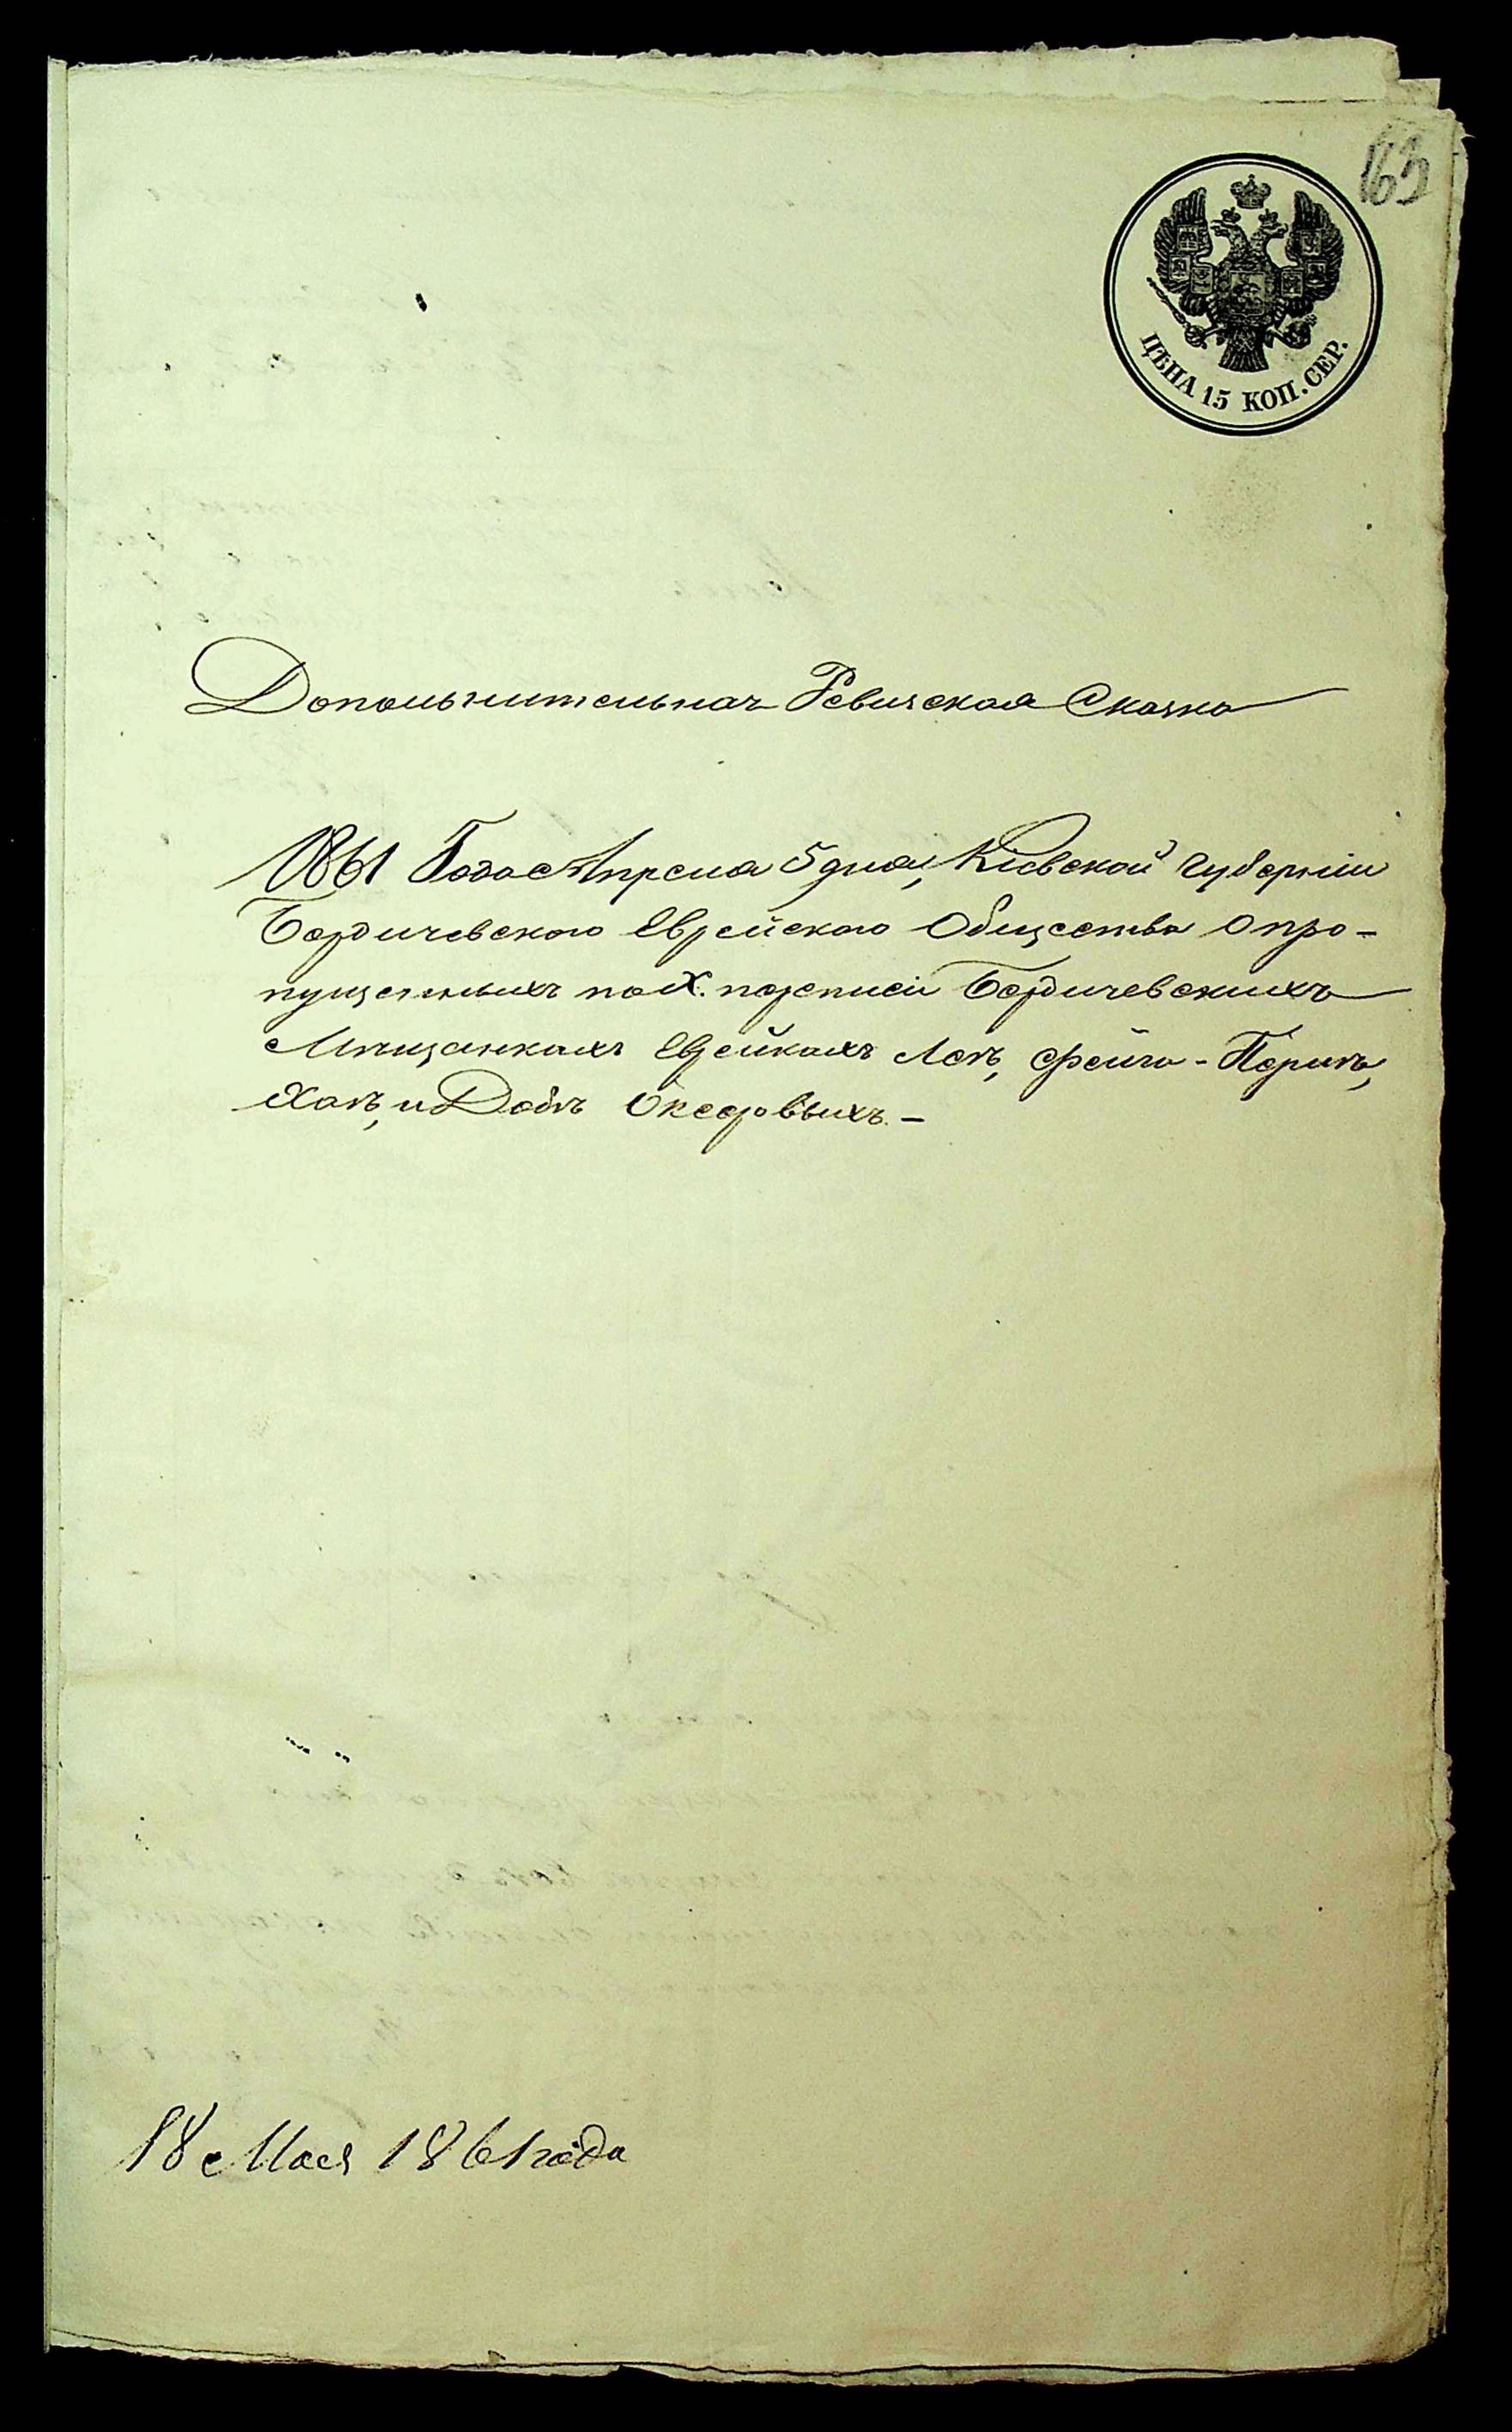 163
ЦѢНА 15 КОП. СЕР.
Дополнительная Ревизская Сказка
1861 Года Апреля 5 дня, Кіевской Губерніи
Бердичевского Еврейского Общества О про-
пущенныхъ по X. переписи Бердичевскихъ
Мѣщанкахъ Еврейкахъ Леѣ, Фейга-Перлѣ,
Хаѣ, и Добѣ Оксеровыхъ. -
18 Мая 1861 года